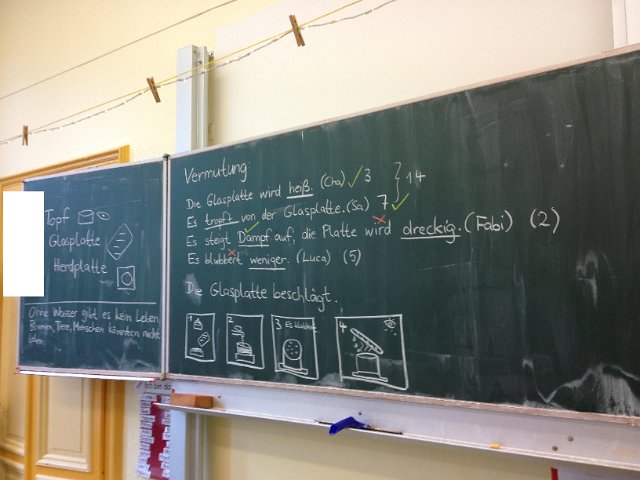 Topf
Glasplatte
Herdplatte
Ohne Wasser gibt es kein Leben
Blumen, Tiere, Menschen könnten nicht
Vermutung:
Die Glasplatte wird heiß. (Cha) ✓ 3
Es tropft von der Glasplatte. (Sa) 7 ✓
14
Es steigt Dampf auf, die Platte wird dreckig. (Fabi) (2)
Es blubbert weniger. (Luca) (5)
Die Glasplatte beschlägt.
1
2
3 Es blubbert
4